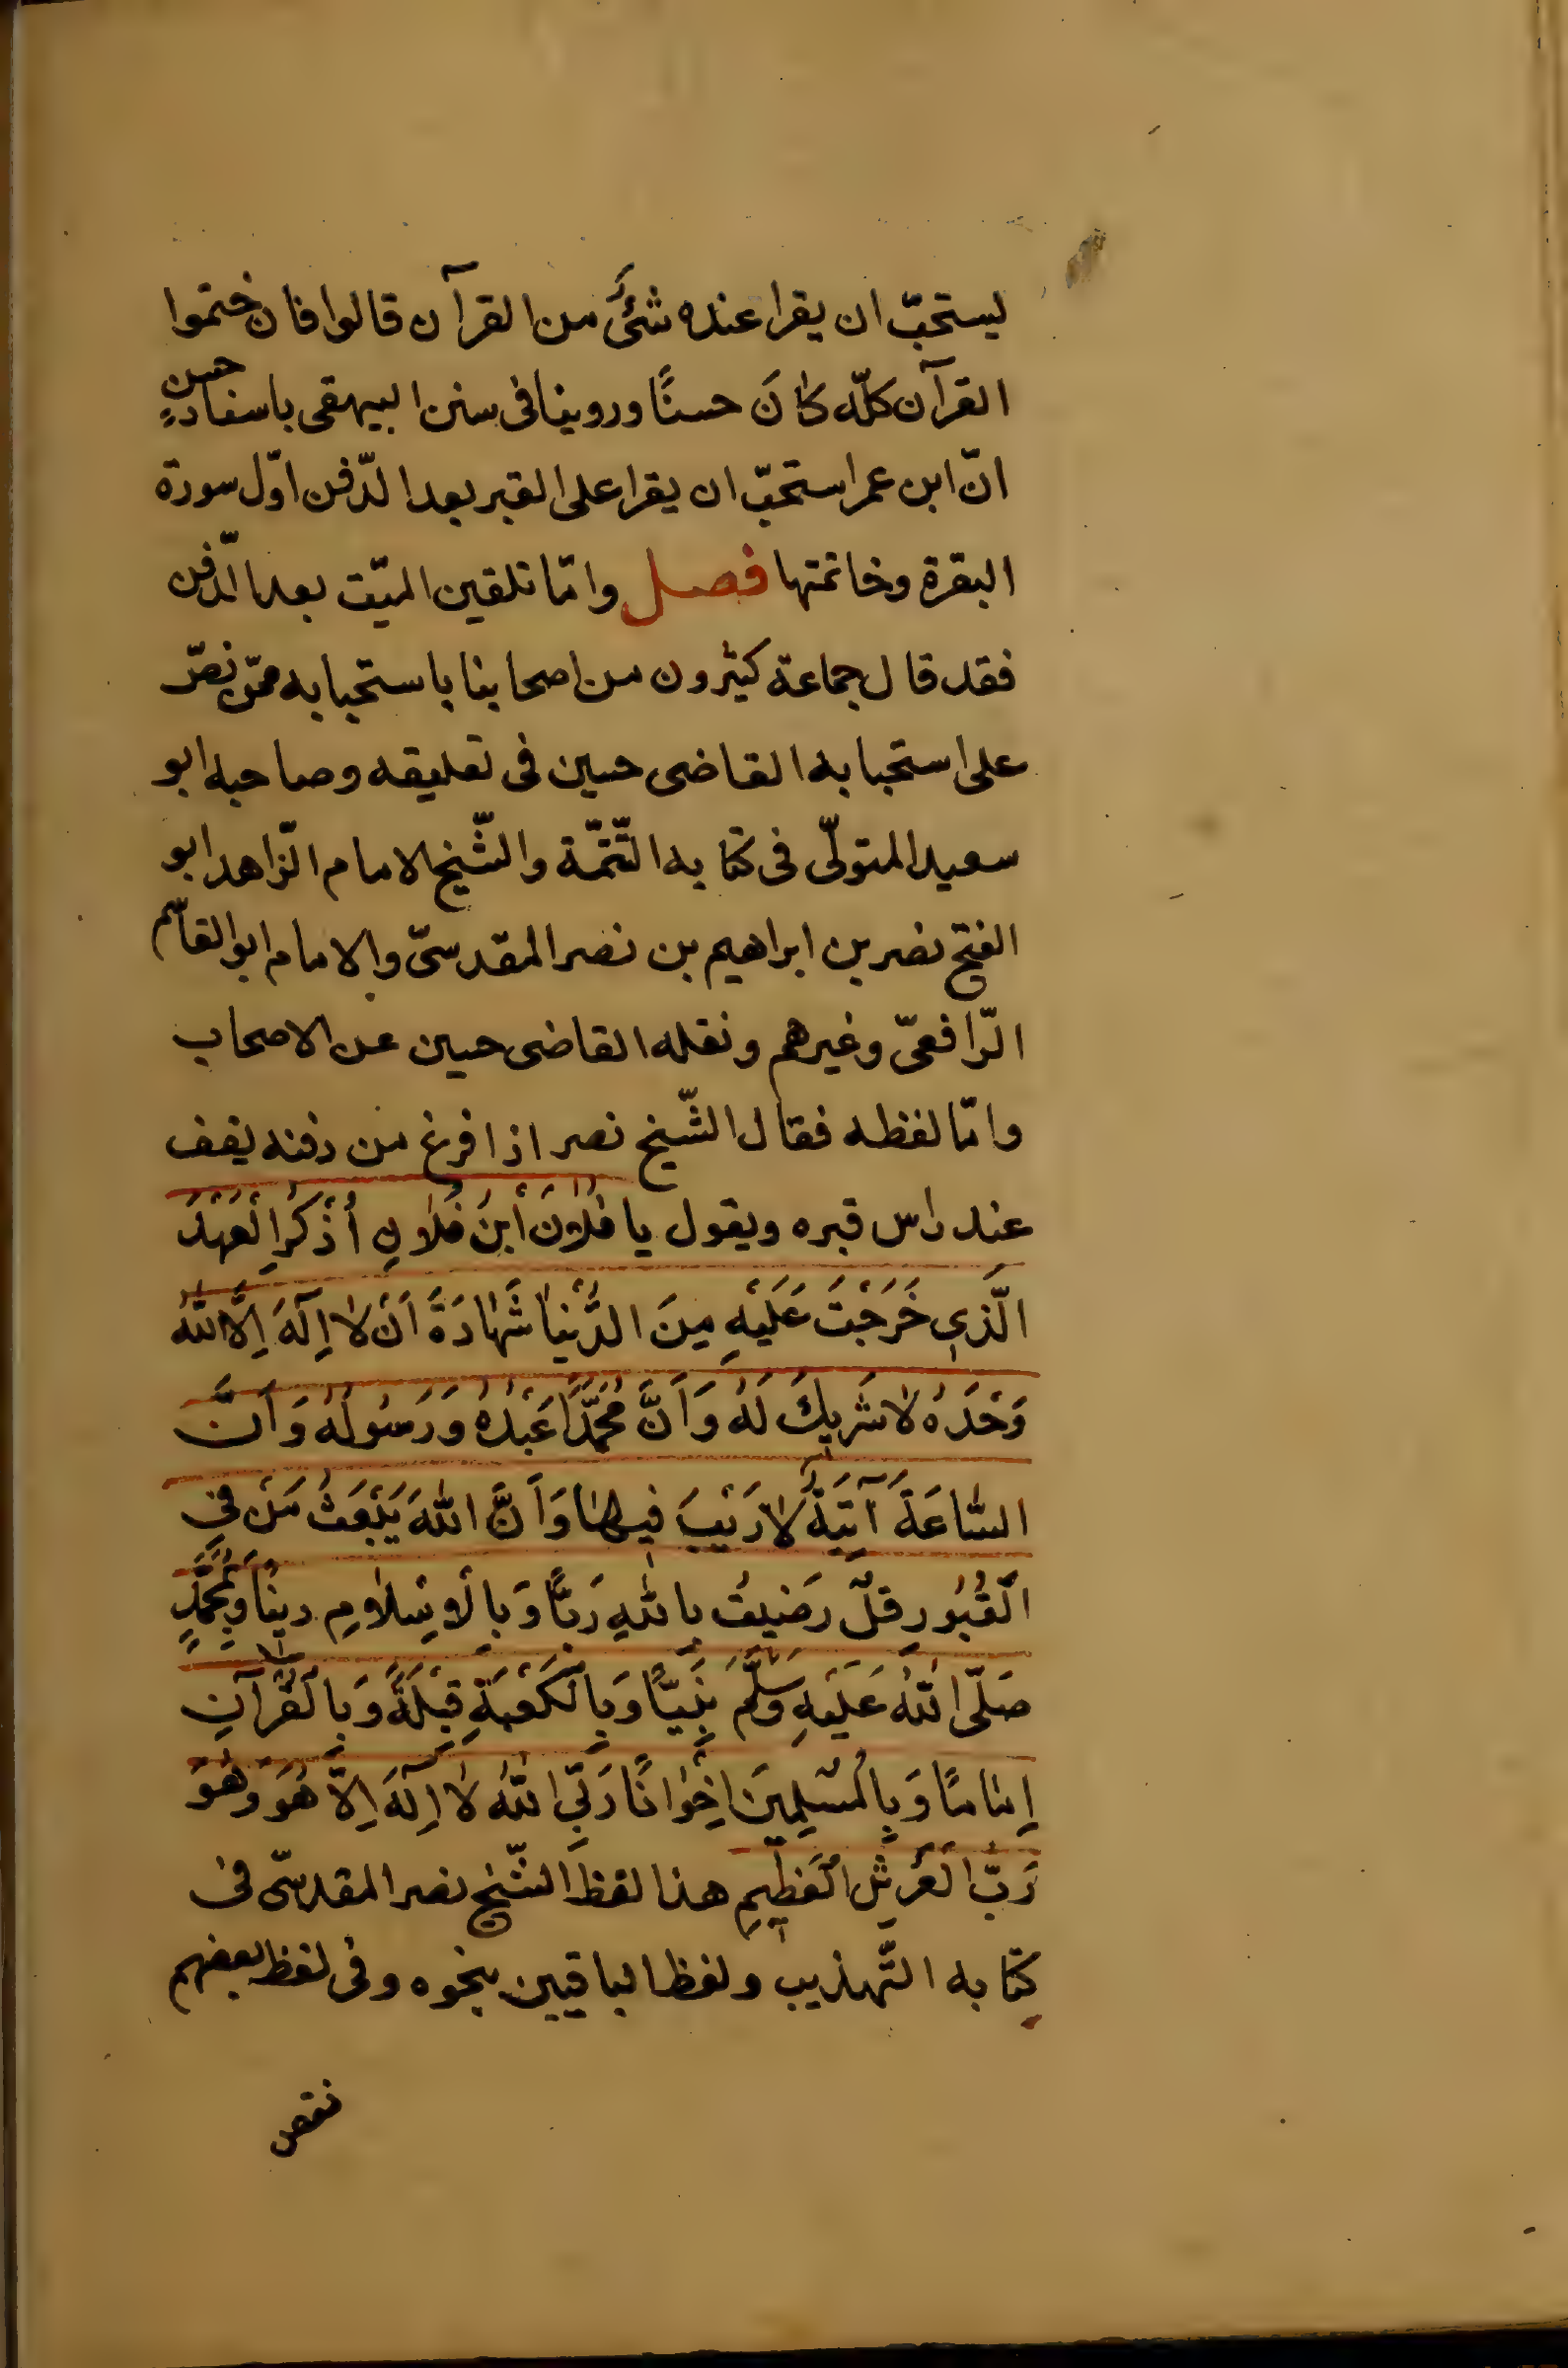 ليستحبّ ان يقرا عنده شئٌ من القرآن قالوا فان ختموا
القرآن كلّه كانَ حسنًا وروينا فى سنن البيهقى باسنادٍ حسن
انّ ابن عمر استحبّ ان يقرا على القبر بعد الدّفن اوّل سورة
البقرة وخاتمتها فصل وامّا تلقين الميّت بعد الدّفن
فقد قال جماعة كثيرون من اصحابنا باستحبابه ممّن نصّ
على استحبابه القاضى حسين فى تعليقه وصاحبه ابو
سعيد المتولّى فى كتابه التّتمّة والشّيخ الامام الزّاهد ابو
الفتح نصر بن ابراهيم بن نصر المقدسىّ والامام ابو القاسم
الرّافعىّ وغيرهم ونقله القاضى حسين عن الاصحاب
وامّا لفظه فقال الشّيخ نصر اذا فرغ من دفنه يقف
عند راس قبره ويقول يا فُلَانَ ابْنَ فُلَانٍ أُذْكُرِ الْعَهْدَ
الَّذِي خَرَجْتَ عَلَيْهِ مِنَ الدُّنْيَا شَهَادَةَ اَنْ لَا اِلٰهَ اِلَّا اللّٰهُ
وَحْدَهُ لَا شَرِيكَ لَهُ وَاَنَّ مُحَمَّدًا عَبْدُهُ وَرَسُولُهُ وَاَنَّ
السَّاعَةَ آتِيَةٌ لَا رَيْبَ فِيهَا وَاَنَّ اللّٰهَ يَبْعَثُ مَنْ فِي
الْقُبُورِ قُلْ رَضِيتُ بِاللّٰهِ رَبًّا وَبِالْاِسْلَامِ دِينًا وَبِمُحَمَّدٍ
صَلَّى اللّٰهُ عَلَيْهِ وَسَلَّمَ نَبِيًّا وَبِالْكَعْبَةِ قِبْلَةً وَبِالْقُرْآنِ
اِمَامًا وَبِالْمُسْلِمِينَ اِخْوَانًا رَبِّيَ اللّٰهُ لَا اِلٰهَ اِلَّا هُوَ وَهُوَ
رَبُّ الْعَرْشِ الْعَظِيمِ هذا لفظ الشّيخ نصر المقدسىّ فى
كتابه التّهذيب ولفظ الباقين بنحوه وفى لفظ بعضهم
نقص